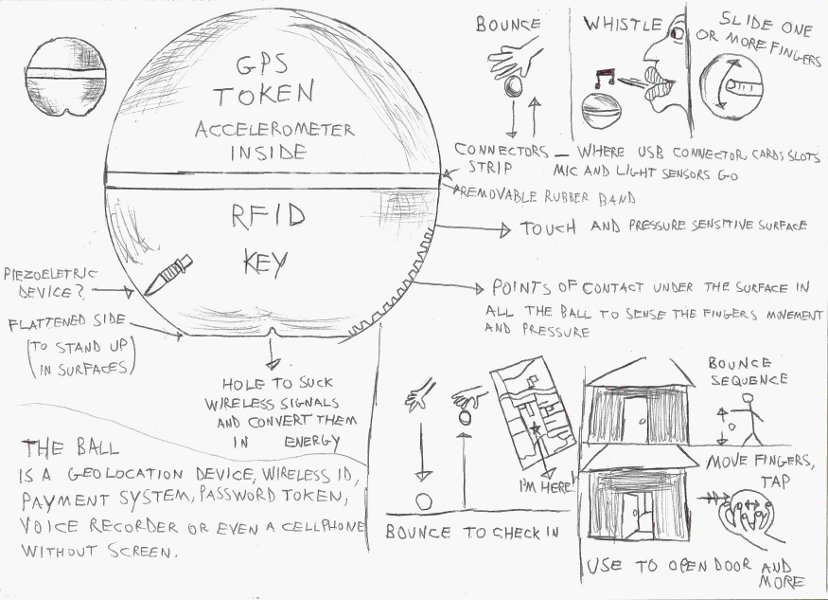 GPS
TOKEN
ACCELEROMETER
INSIDE
RFID
KEY
BOUNCE
WHISTLE
SLIDE ONE
OR MORE FINGERS
CONNECTORS
STRIP
— WHERE USB CONNECTOR, CARDS SLOTS
MIC AND LIGHT SENSORS GO
REMOVABLE RUBBER BAND
TOUCH AND PRESSURE SENSITIVE SURFACE
POINTS OF CONTACT UNDER THE SURFACE IN
ALL THE BALL TO SENSE THE FINGERS MOVEMENT
AND PRESSURE
PIEZOELETRIC
DEVICE?
FLATTENED SIDE
(TO STAND UP
IN SURFACES)
HOLE TO SUCK
WIRELESS SIGNALS
AND CONVERT THEM
IN ENERGY
THE BALL
IS A GEOLOCATION DEVICE, WIRELESS ID,
PAYMENT SYSTEM, PASSWORD TOKEN,
VOICE RECORDER OR EVEN A CELLPHONE
WITHOUT SCREEN.
I'M HERE!
BOUNCE TO CHECK IN
BOUNCE
SEQUENCE
MOVE FINGERS,
TAP
USE TO OPEN DOOR AND
MORE